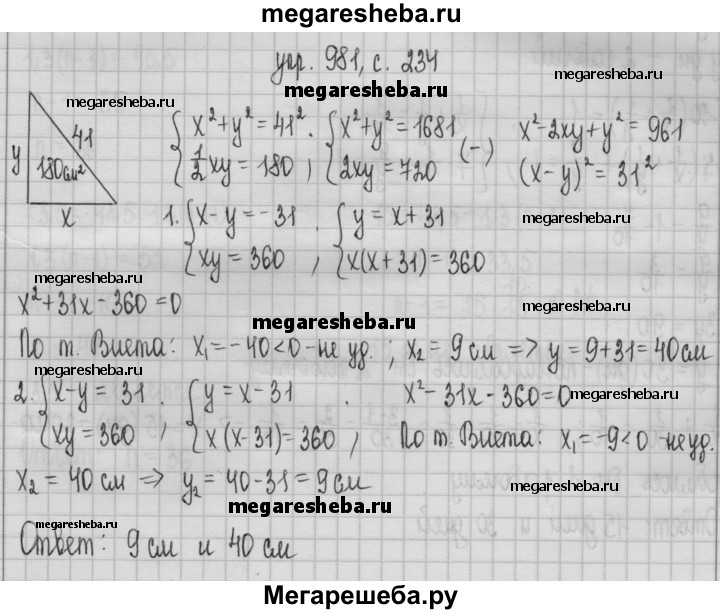 megaresheba.ru
упр. 981, с. 234
megaresheba.ru
megaresheba.ru
megaresheba.ru
y 41 180см² x
{x²+y²=41² ; ½xy=180 , {x²+y²=1681 ; 2xy=720 (-) x²-2xy+y²=961
(x-y)²=31²
1. {x-y=-31 ; xy=360 , {y=x+31 ; x(x+31)=360
megaresheba.ru
megaresheba.ru
x²+31x-360=0
megaresheba.ru
По т. Виета: x₁=-40<0-не уд. ; x₂=9см => y=9+31=40см
megaresheba.ru
megaresheba.ru
2. {x-y=31 ; xy=360 , {y=x-31 ; x(x-31)=360 , x²-31x-360=0
По т. Виета: x₁=-9<0-не уд.
x₂=40см => y₂=40-31=9см
megaresheba.ru
megaresheba.ru
megaresheba.ru
Ответ: 9см и 40см
Мегарешеба.ру